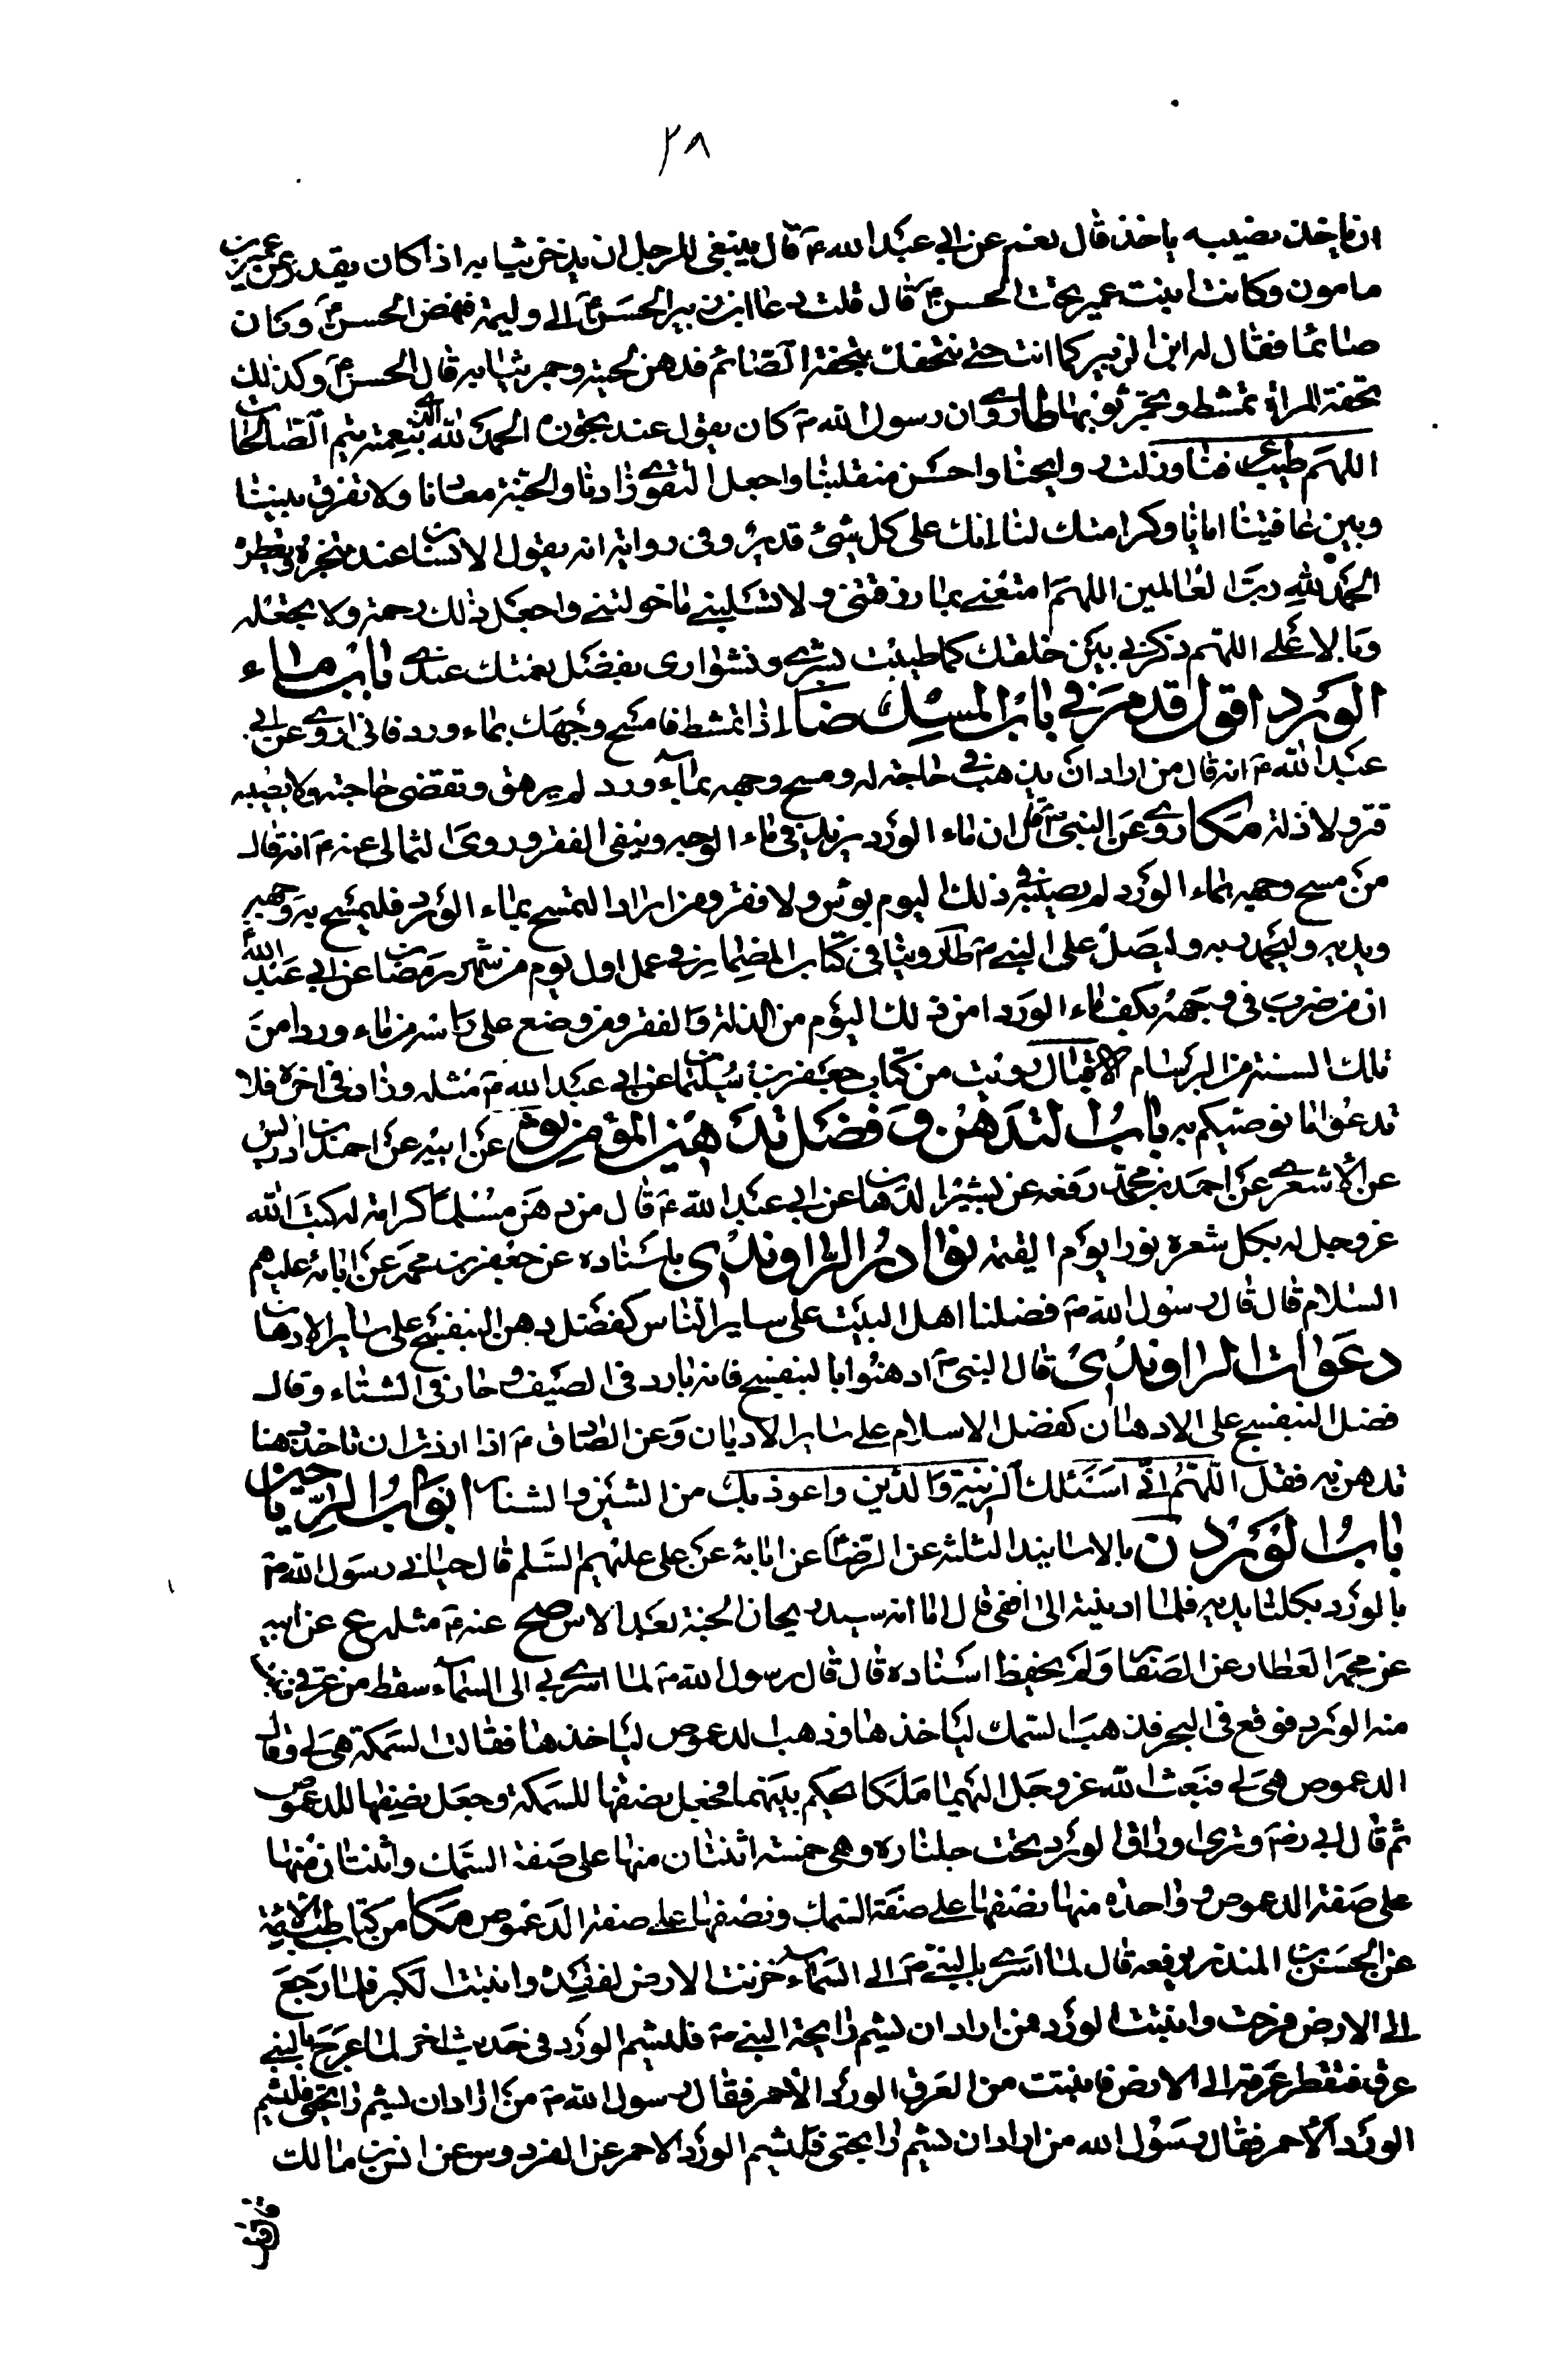 ٢٨
ان ياخذ نصيبه ياخذ قال نعم عن ابي عبد الله ع قال ينبغي للرجل ان يدخن ثيابه اذا كان يقدر وعن عمير بن
مامون وكانت ابنت عمير تحت الحسن ع قال قلت دعا ابن زبير الحسن ع الى وليمة فنهض الحسن ع وكان
صائما فقال له ابن الزبير كما انت حتى نتحفك بتحفة الصائم فدهن لحيته وجمر ثيابه قال الحسن ع وكذلك
تحفة المراة تمشط وتجمر ثوبها طا روي ان رسول الله ص كان يقول عند بخوره الحمد لله الذي بنعمته يتم الصالحات
اللهم طيب عرفنا وزك روايحنا واحسن منقلبنا واجعل التقوى زادنا والجنة معادنا ولا تفرق بيننا
وبين عافيتنا ايانا وكرامتك لنا انك على كل شئ قدير وفي رواية انه يقول الانسان عند تبخره وتعطره
الحمد لله رب العالمين اللهم امتعني بما رزقتني ولا تسلبني ما خولتني واجعل ذلك رحمة ولا تجعله
وبالا علي اللهم ذكرني بين خلقك كما طيبت بشري ونشواري بفضل نعمتك عندي باب ماء
الورد اقول قد مر في باب المسك ضا اذا تمشط فامسح وجهك بماء ورد فاني اروي عن ابي
عبد الله ع انه قال من اراد ان يذهب في حاجة له ومسح وجهه بماء ورد لم يرهق وتقضى حاجته ولا يصيبه
قتر ولا ذلة مكا روي عن النبي ص قال ان ماء الورد يزيد في ماء الوجه وينفي الفقر وروى الثمالي عنه ع انه قال
من مسح وجهه بماء الورد لم يصبه في ذلك اليوم بؤس ولا فقر ومن اراد التمسح بماء الورد فليمسح به وجهه
ويديه وليحمد ربه وليصل على النبي ص طا روينا في كتاب المضمار في عمل اول يوم من شهر رمضان عن ابي عبد الله
ان من ضرب في وجهه بكف ماء الورد امن ذلك اليوم من الذلة والفقر ومن وضع على راسه من ماء ورد امن
تلك السنة من البرسام الاقبال رويت من كتاب جعفر بن سليمان عن ابي عبد الله ع مثله وزاد في اخره فلا
تدعوا ما نوصيكم به باب التدهن وفضل تدهين المؤمن ثو عن ابيه عن احمد بن ادريس
عن الاشعري عن احمد بن محمد رفعه عن بشير الدهان عن ابي عبد الله ع قال من دهن مسلما كرامة له كتب الله
عز وجل له بكل شعرة نورا يوم القيمة نوادر الراوندي باسناده عن جعفر بن محمد عن ابائه عليهم
السلام قال قال رسول الله ص فضلنا اهل البيت على ساير الناس كفضل دهن البنفسج على ساير الادهان
دعوات الراوندي قال النبي ص ادهنوا بالبنفسج فانه بارد في الصيف حار في الشتاء وقال
فضل البنفسج على الادهان كفضل الاسلام على ساير الاديان وعن الصادق ع اذا اردت ان تاخذ دهنا
تدهن به فقل اللهم اني اسئلك الزينة والدين واعوذ بك من الشين والشنان ابواب الرياحين
باب الورد ن بالاسانيد الثلثة عن الرضا ع عن ابائه عن علي عليهم السلم قال حباني رسول الله ص
بالورد بكلتا يديه فلما ادنيته الى انفي قال اما انه سيد ريحان الجنة بعد الاس صح عنه ع مثله ع عن ابيه
عن محمد العطار عن الصفار ولم يحفظ اسناده قال قال رسول الله ص لما اسري بي الى السماء سقط من عرقي فنبت
منه الورد فوقع في البحر فذهب السمك لياخذها وذهب الدعموص لياخذها فقالت السمكة هي لي وقال
الدعموص هي لي فبعث الله عز وجل اليهما ملكا يحكم بينهما فجعل نصفها للسمكة وجعل نصفها للدعموص
ثم قال ابي رض وترى اوراق الورد تحت جلناره وهي خمسة اثنتان منها على صفة السمك واثنتان منها
على صفة الدعموص وواحدة منها نصفها على صفة السمك ونصفها على صفة الدعموص مكا من كتاب طب الائمة
عن الحسن بن المنذر يرفعه قال لما اسري بالنبي ص الى السماء حزنت الارض لفقده وانبتت الكبر فلما رجع
الى الارض فرحت وانبتت الورد فمن اراد ان يشم رايحة النبي ص فليشم الورد في حديث اخر لما عرج بالنبي
عرق فتقطر عرقه الى الارض فانبتت من العرق الورد الاحمر فقال رسول الله ص من اراد ان يشم رايحتي فليشم
الورد الاحمر فقال رسول الله من اراد ان يشم رايحتي فليشم الورد الاحمر عن الفردوس عن انس بن مالك